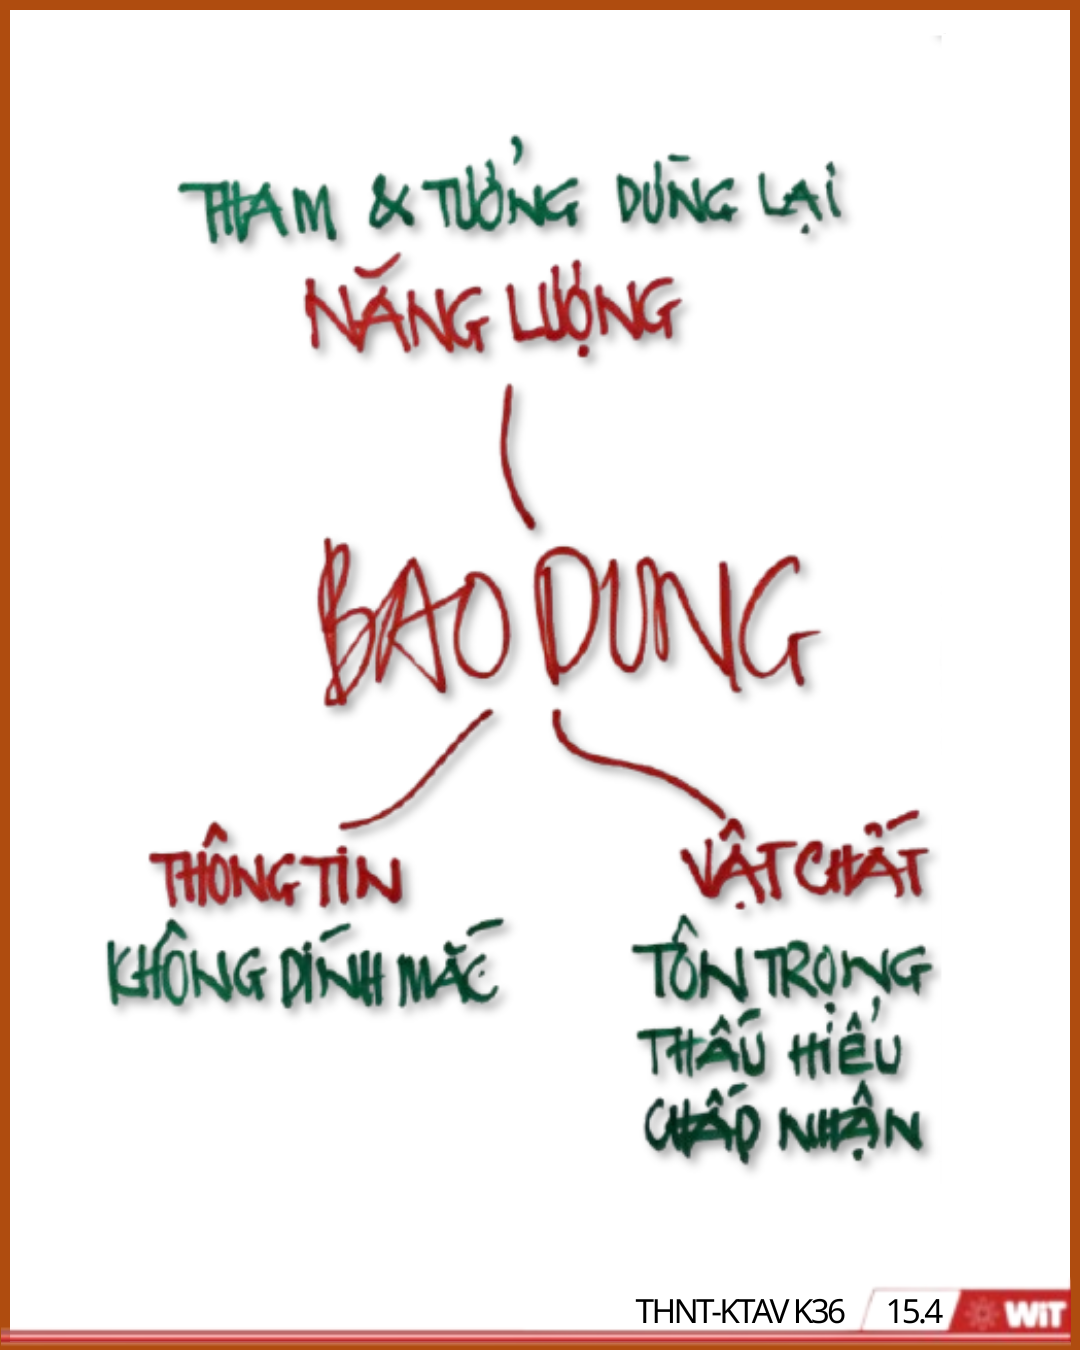 THAM & TƯỞNG DỪNG LẠI
NĂNG LƯỢNG
BAO DUNG
THÔNG TIN
KHÔNG DÍNH MẮC
VẬT CHẤT
TÔN TRỌNG
THẤU HIỂU
CHẤP NHẬN
THNT-KTAV K36
15.4
WiT